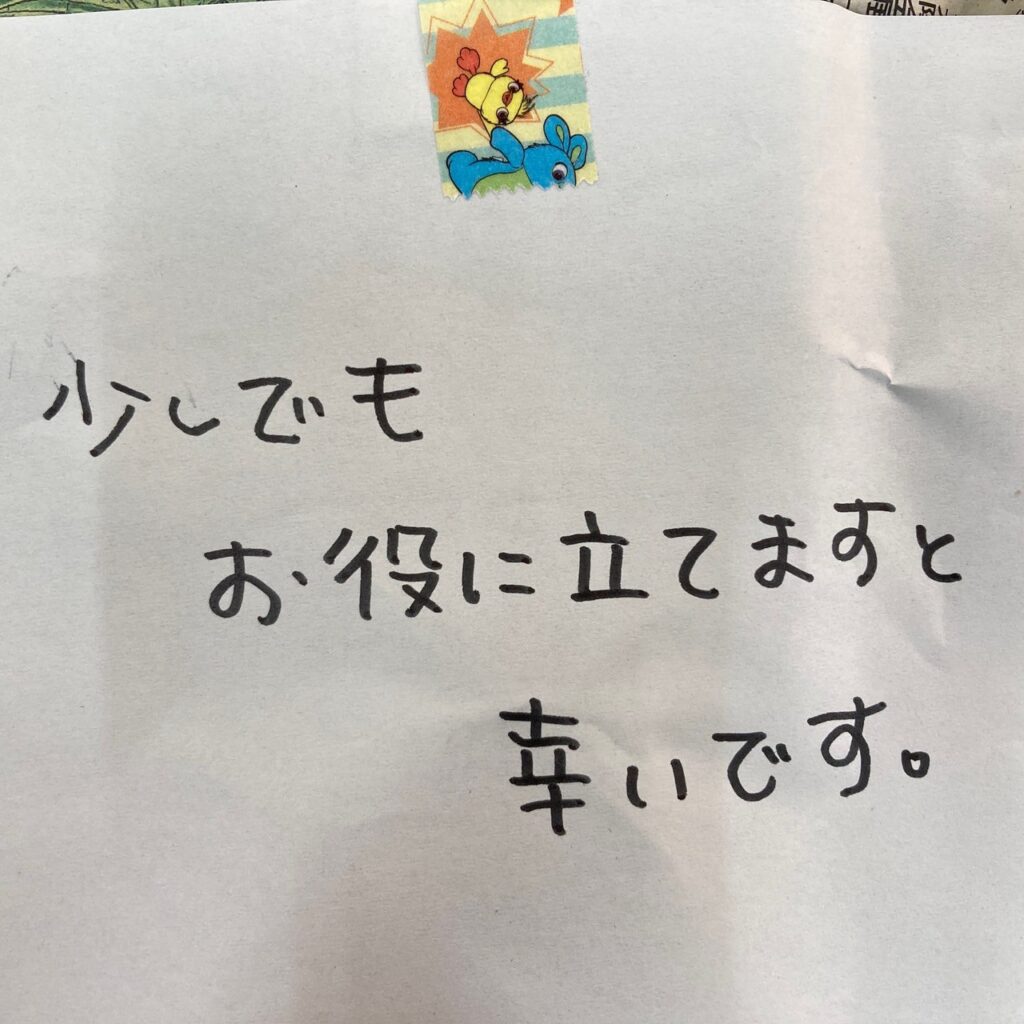 少しでも
お役に立てますと
幸いです。